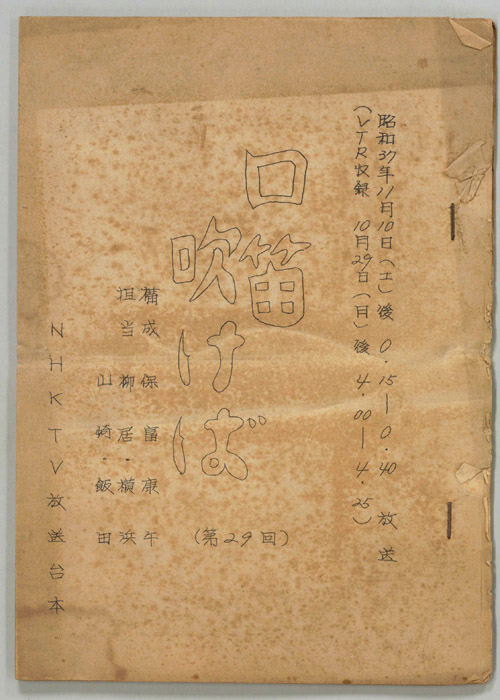 昭和37年11月10日(土)後 0.15―0.40 放送
(VTR収録 10月29日(月)後 4.00―4.25)
口笛
吹けば
(第29回)
構成 保富康午
担当 柳居・横浜
山崎・飯田
NHKTV放送台本